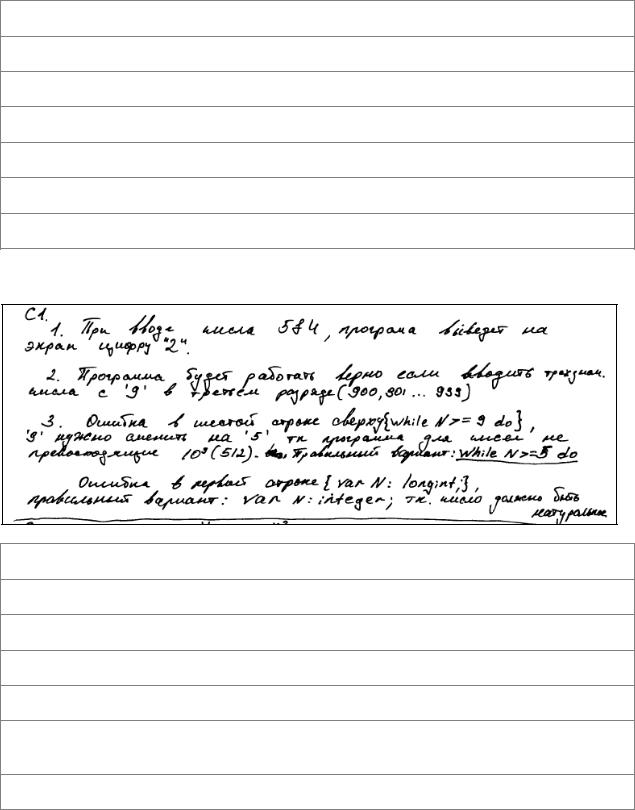 С1.
1. При вводе числа 584, програма выведет на
экран цифру "2".
2. Программа будет работать верно если вводить трехзнач.
числа с '9' в третьем разряде (900, 901 ... 999)
3. Ошибка в шестой строке сверху {while N>=9 do},
'9' нужно сменить на '5' тк программа для чисел не
превосходящие 10⁹ (512). Правильный вариант: while N>=5 do
Ошибка в первой строке { var N: longint;},
правильный вариант: var N: integer; тк. число должно быть
натуральное